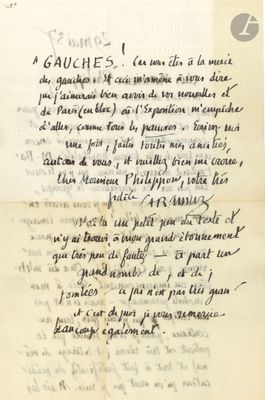 " GAUCHES. ! Car vous êtes à la merci
des gauches! Et ceci m'amène à vous dire
que j'aimerais bien avoir de vos nouvelles et
de Paris (en bloc) où l'Exposition m'empêche
d'aller, comme tous les pauvres. Écrivez-moi
une fois, faites toutes mes amitiés,
autour de vous, et veuillez bien me croire,
cher Monsieur Philippon, votre très
fidèle C F RAMUZ
un petit peu du texte et
n'y ai trouvé à mon grand étonnement
que très peu de fautes — à part un
grand nombre de , et de ;
tombées ce qui n'est pas très grave
et c'est de quoi je vous remercie
beaucoup également.